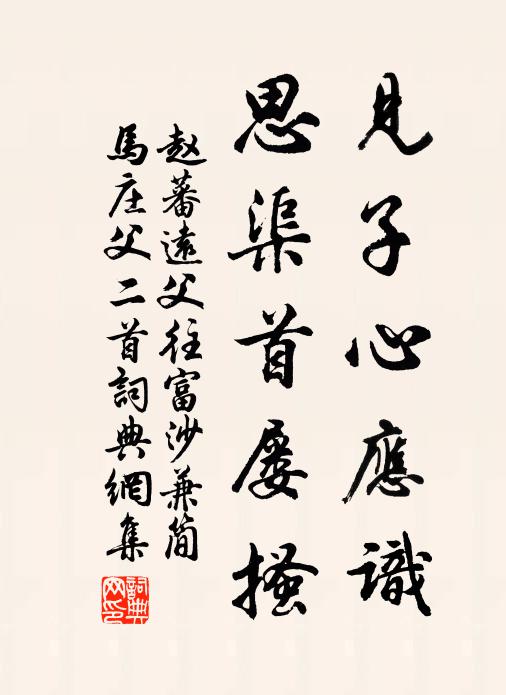 見子心應識
思渠首屡搔
赵蕃遠父往富沙兼简
馬庄父二首詞典網集
詞典網印